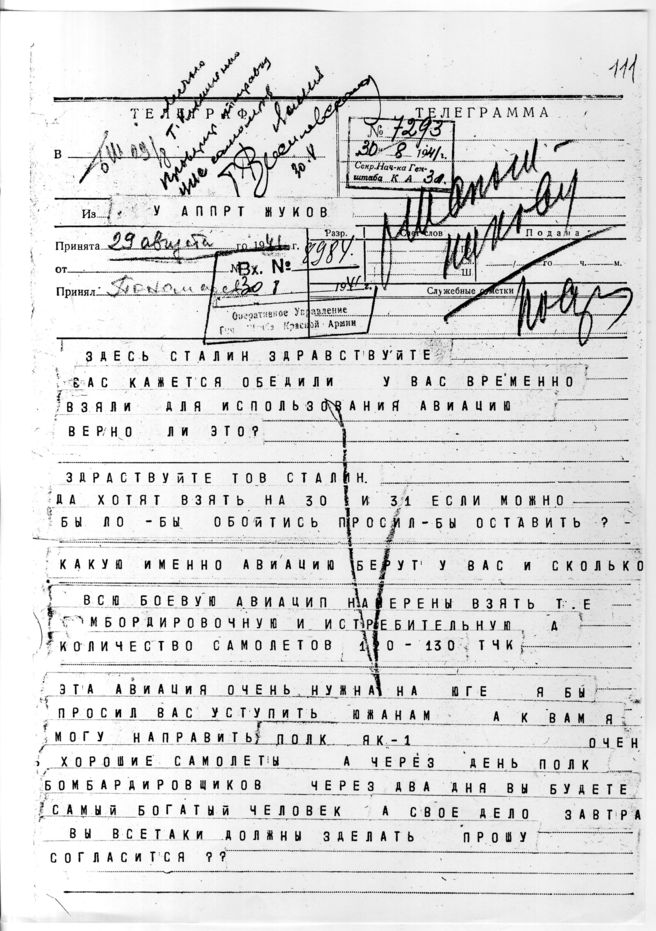 111
Лично
Т. Коваленко
ТЕЛЕГРАФ ТЕЛЕГРАММА
№ 7293
30-8 1941г.
Секр. Нач-ка Ген-
штаба К А
В
Из У АППРТ ЖУКОВ
Принята 29 августа го 1941 г.
Разр. слов Подана
8984.
от го ч. м.
Ш.
Вх. №
30 194 г.
Принял: Служебные отметки
Оперативное Управление
Ген. Штаба Красной Армии
ЗДЕСЬ СТАЛИН ЗДРАВСТВУЙТЕ
ВАС КАЖЕТСЯ ОБЕДИЛИ У ВАС ВРЕМЕННО
ВЗЯЛИ ДЛЯ ИСПОЛЬЗОВАНИЯ АВИАЦИЮ
ВЕРНО ЛИ ЭТО?
ЗДРАСТВУЙТЕ ТОВ СТАЛИН.
ДА ХОТЯТ ВЗЯТЬ НА 30 И 31 ЕСЛИ МОЖНО
БЫ ЛО -БЫ ОБОЙТИСЬ ПРОСИЛ-БЫ ОСТАВИТЬ ? -
КАКУЮ ИМЕННО АВИАЦИЮ БЕРУТ У ВАС И СКОЛЬКО
ВСЮ БОЕВУЮ АВИАЦИП НАМЕРЕНЫ ВЗЯТЬ Т.Е
МБОРДИРОВОЧНУЮ И ИСТРЕБИТЕЛЬНУЮ А
КОЛИЧЕСТВО САМОЛЕТОВ 120-130 ТЧК
ЭТА АВИАЦИЯ ОЧЕНЬ НУЖНА НА ЮГЕ Я БЫ
ПРОСИЛ ВАС УСТУПИТЬ ЮЖАНАМ А К ВАМ Я
МОГУ НАПРАВИТЬ ПОЛК ЯК-1 ОЧЕН
ХОРОШИЕ САМОЛЕТЫ А ЧЕРЕЗ ДЕНЬ ПОЛК
БОМБАРДИРОВЩИКОВ ЧЕРЕЗ ДВА ДНЯ ВЫ БУДЕТЕ
САМЫЙ БОГАТЫЙ ЧЕЛОВЕК А СВОЕ ДЕЛО ЗАВТРА
ВЫ ВСЕТАКИ ДОЛЖНЫ ЗДЕЛАТЬ ПРОШУ
СОГЛАСИТСЯ ??